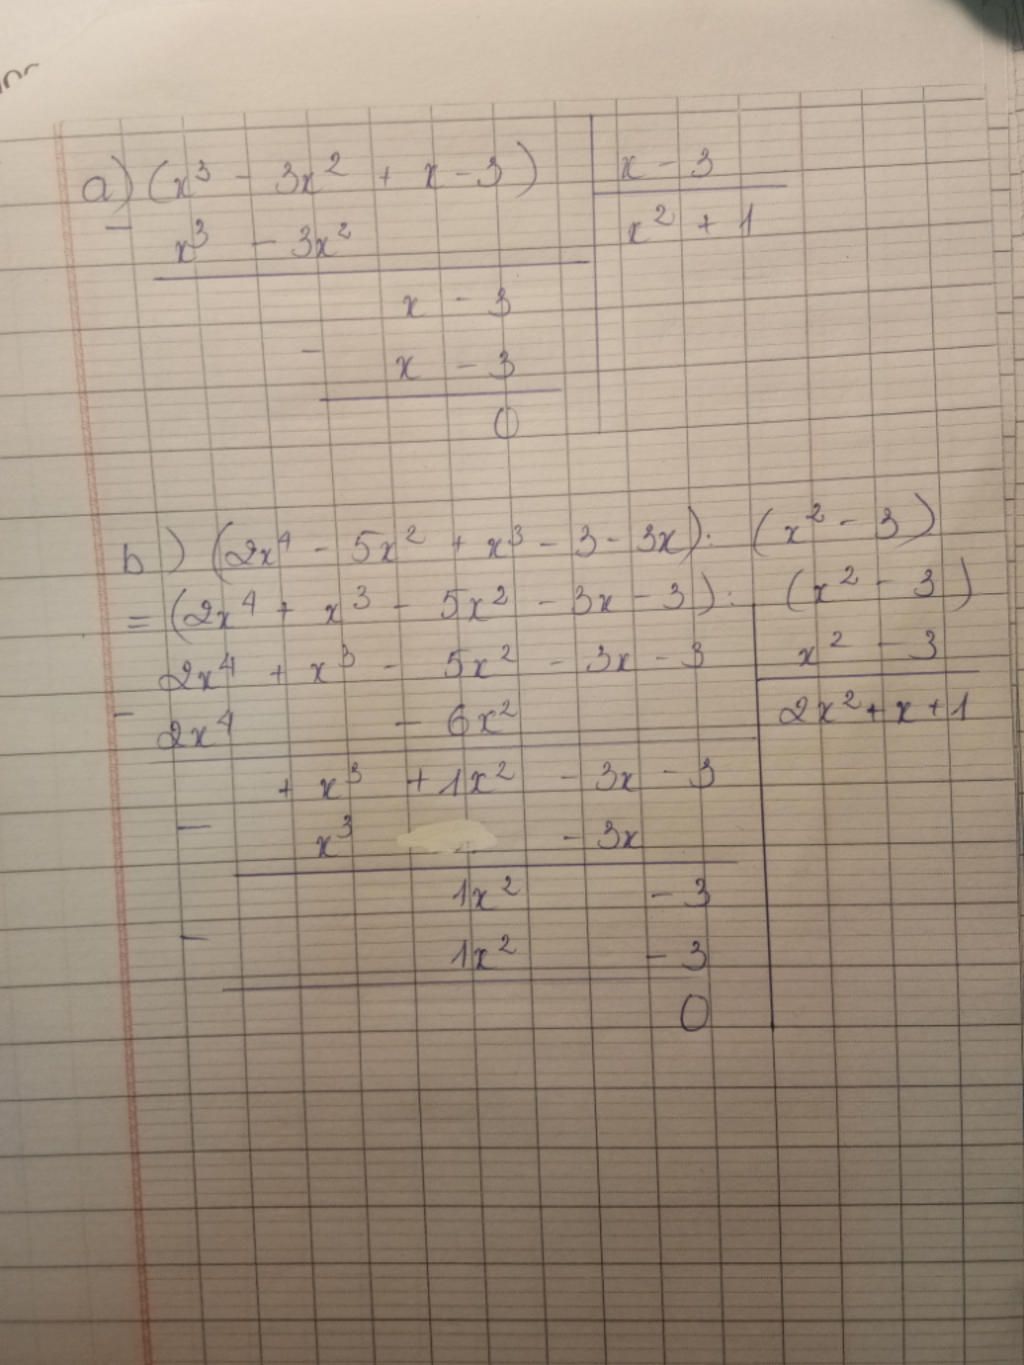 a) (x³ - 3x² + x - 3) | x - 3
- x³ - 3x² | x² + 1
x - 3
- x - 3
0
b) (2x⁴ - 5x² + x³ - 3 - 3x) : (x² - 3)
= (2x⁴ + x³ - 5x² - 3x - 3) : (x² - 3)
2x⁴ + x³ - 5x² - 3x - 3 | x² - 3
- 2x⁴ - 6x² | 2x² + x + 1
+ x³ + 1x² - 3x - 3
- x³ - 3x
1x² - 3
- 1x² - 3
0